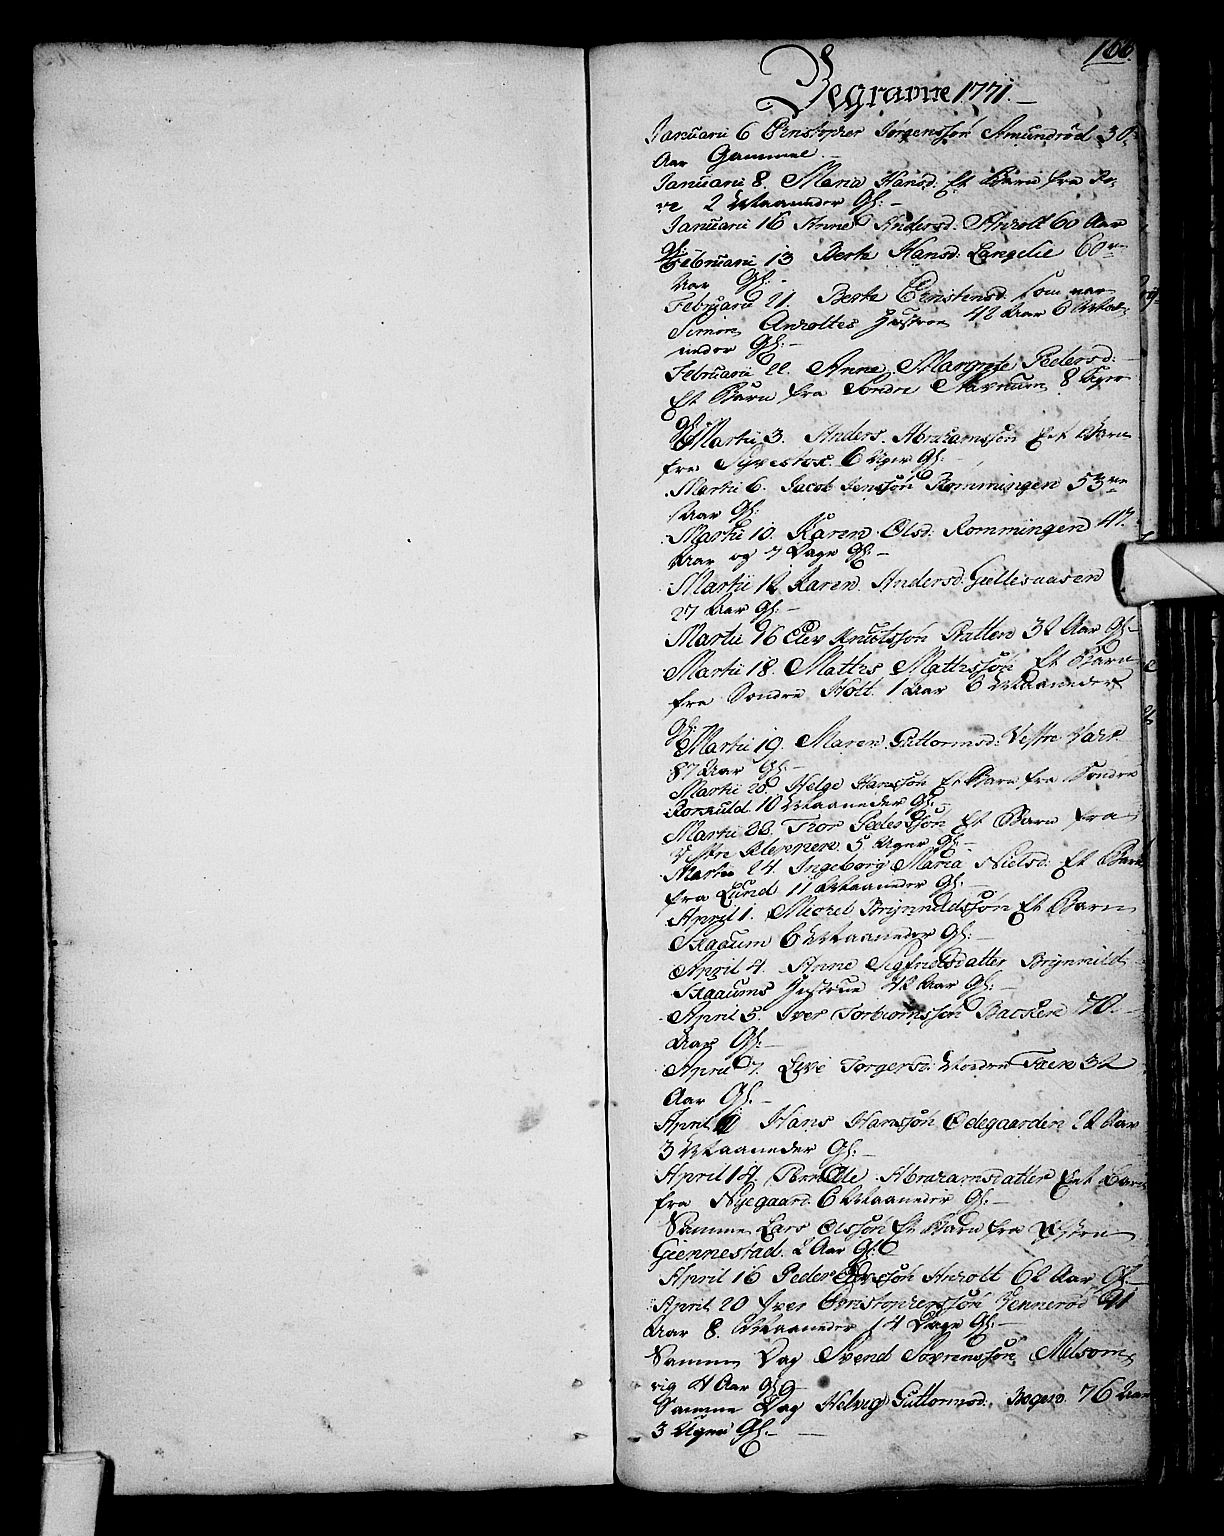 166.
Begravne 1771.
Januarii 6 Christopher Jørgenssøn Amundrød 30
Aar Gammel.
Januarii 8. Maria Hansd: Et Barn fra Ro-
ve 2 Maaneder Gl:
Januarii 16 Anne Andersd: Anholt 60 Aar
Gl:
Februarii 13 Berte Hansd: Langelie 60
Aar Gl:
Februarii 21. Berte Christensd: som var
Simon Anholtes Hustrue 42 Aar 6 Maa-
neder Gl:
Februarii 22. Anne Margrete Pedersd:
Et Barn fra Søndre 8 Uger
Gl:
Martii 3. Anders Abrahamssøn Eet Barn
fra 6 Uger Gl:
Martii 6. Jacob Jenssøn Rømmingen 53
Aar Gl:
Martii 10. Karen Olsd: Rommingen 47
Aar og 7 Dage Gl:
Martii 12 Karen Andersd: Gullesaasen
27 Aar Gl:
Martii 16 Elev Knutssøn Bratten 32 Aar Gl:
Martii 18. Mathis Mathissøn Et Barn
fra Søndre Holt 1 Aar 6 Maaneder
Gl:
Martii 19. Maren Guttormsd: Vestre
87 Aar Gl:
Martii 20. Helge Hanssøn Et Barn fra Søndre
Romsuld 10 Maaneder Gl:
Martii 22. Thor Pederssøn Et Barn fra
Vestre 5 Uger Gl:
Martii 24. Ingeborg Maria Nielsd: Et Barn
fra Lund 11 Maaneder Gl:
April 1. Michel Brynnildssøn Et Barn
Skaaum 6 Maaneder Gl:
April 4. Anne Sigfridsdatter Brynnild
Skaaums Hustrue 42 Aar Gl:
April 5. Iver Torbiørnssøn Backen 70.
Aar Gl:
April 7. Live Torgersd: Nordre Faen 32
Aar Gl:
April Hans Hanssøn Ødegaarden 22 Aar
3 Maaneder Gl:
April 14. Pernille Abrahamsdatter Eet Barn
fra Nyegaard 6 Maaneder Gl:
Samme Lars Olssøn Et Barn fra Østre
Giennestad 2 Aar Gl:
April 16 Peder Anholt 62 Aar Gl:
April 20 Iver Christopherssøn Gennerød 41
Aar 8. Maaneder 14 Dage Gl:
Samme Dag Svend Sørenssøn Melsom-
vig 4 Aar Gl:
Samme Dag Helvig Guttormsd: 76 Aar
3 Uger Gl: